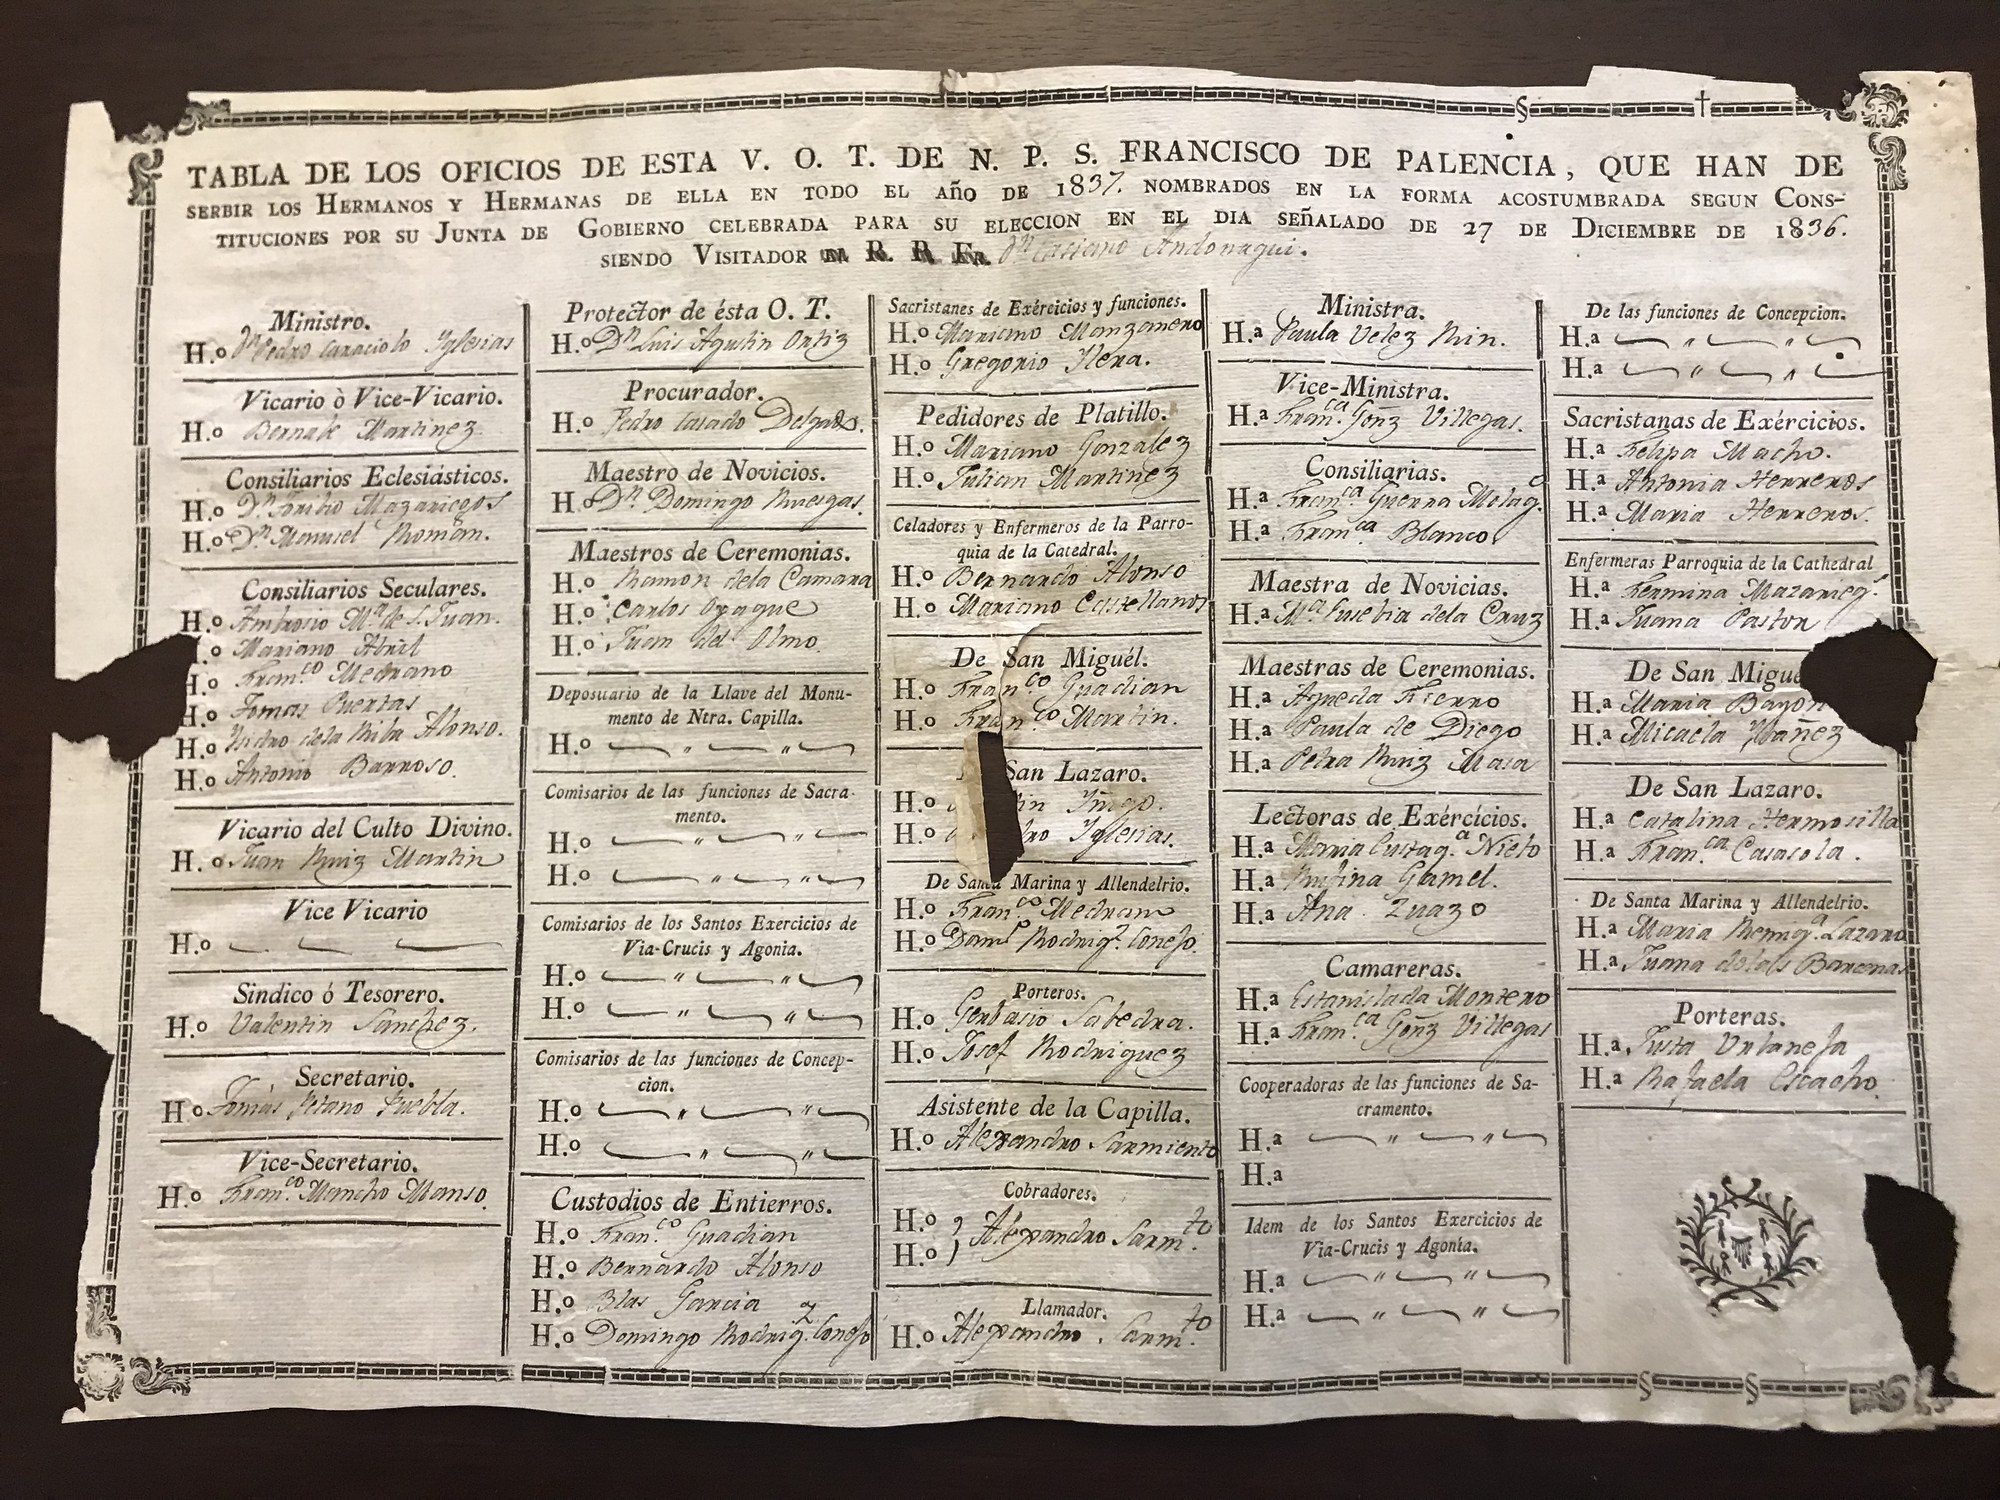 TABLA DE LOS OFICIOS DE ESTA V. O. T. DE N. P. S. FRANCISCO DE PALENCIA, QUE HAN DE
SERBIR LOS HERMANOS Y HERMANAS DE ELLA EN TODO EL AÑO DE 1837. NOMBRADOS EN LA FORMA ACOSTUMBRADA SEGUN CONS-
TITUCIONES POR SU JUNTA DE GOBIERNO CELEBRADA PARA SU ELECCION EN EL DIA SEÑALADO DE 27 DE DICIEMBRE DE 1836.
SIENDO VISITADOR R. R. FR. Dn Casiano Andonagui.
Ministro.
H.o Dn Pedro Caraciolo Yglesias
Vicario ò Vice-Vicario.
H.o Bernabe Martinez
Consiliarios Eclesiásticos.
H.o Dn Toribio Mazariegos
H.o Dn Manuel Roman.
Consiliarios Seculares.
H.o Ambrosio Ma de S. Juan.
H.o Mariano Abril
H.o Franco Medrano
H.o Tomas Puertas
H.o Ysidro de la Riba Alonso.
H.o Antonio Barroso.
Vicario del Culto Divino.
H.o Juan Ruiz Martin
Vice Vicario
H.o
Sindico ó Tesorero.
H.o Valentin Sanchez.
Secretario.
H.o Tomás Puebla.
Vice-Secretario.
H.o Franco Mancho Manso.
Protector de ésta O. T.
H.o Dn Luis Agustin Ortiz
Procurador.
H.o Pedro Casado Delgado.
Maestro de Novicios.
H.o Dn Domingo Ruesgas.
Maestros de Ceremonias.
H.o Ramon dela Camara
H.o Carlos
H.o Juan del Olmo.
Depositario de la Llave del Monu-
mento de Ntra. Capilla.
H.o " "
Comisarios de las funciones de Sacra-
mento.
H.o " "
H.o " "
Comisarios de los Santos Exercicios de
Via-Crucis y Agonía.
H.o " "
H.o " "
Comisarios de las funciones de Concep-
cion.
H.o " "
H.o " "
Custodios de Entierros.
H.o Franco Guadian
H.o Bernardo Alonso
H.o Blas Garcia
H.o Domingo Rodrigz Conejo
Sacristanes de Exércicios y funciones.
H.o Mariano Manzanero
H.o Gregorio Ylera.
Pedidores de Platillo.
H.o Mariano Gonzalez
H.o Julian Martinez
Celadores y Enfermeros de la Parro-
quia de la Catedral.
H.o Bernardo Alonso
H.o Mariano Castellanos
De San Miguél.
H.o Franco Guadian
H.o Franco Martin.
San Lazaro.
H.o
H.o Yglesias.
De Santa Marina y Allendelrio.
H.o Franco Medrano
H.o Domo Rodrigz Conejo.
Porteros.
H.o Gerbasio Sabedra.
H.o Josef Rodriguez
Asistente de la Capilla.
H.o Alexandro Sarmiento
Cobradores.
H.o } Alexandro Sarmto.
H.o
Llamador.
H.o Alexandro Sarmto.
Ministra.
H.a Paula Velez Min.
Vice-Ministra.
H.a Franca Gonz Villegas.
Consiliarias.
H.a Franca Guerra
H.a Franca Blanco
Maestra de Novicias.
H.a Ma Eusebia dela Cruz
Maestras de Ceremonias.
H.a Agueda Fierro
H.a Paula de Diego
H.a Petra Ruiz Masa
Lectoras de Exércicios.
H.a Maria Eustaqa Nieto
H.a Rufina Gamel.
H.a Ana Zuazo
Camareras.
H.a Estanislada Montero
H.a Franca Gonz Villegas
Cooperadoras de las funciones de Sa-
cramento.
H.a " "
H.a
Idem de los Santos Exercicios de
Via-Crucis y Agonía.
H.a " "
H.a " "
De las funciones de Concepcion.
H.a " "
H.a " "
Sacristanas de Exércicios.
H.a Felipa Macho.
H.a Antonia Herreros
H.a Maria Herreros.
Enfermeras Parroquia de la Cathedral
H.a Fermina Mazarieg.
H.a Juana Pastor
De San Migué
H.a Maria Bayon
H.a Micaela Ybañez
De San Lazaro.
H.a Catalina Hermosilla
H.a Franca Casasola.
De Santa Marina y Allendelrio.
H.a Maria Remiga Lazaro
H.a Juana delas Barcenas
Porteras.
H.a Justa Urbaneja
H.a Rafaela Escacho.